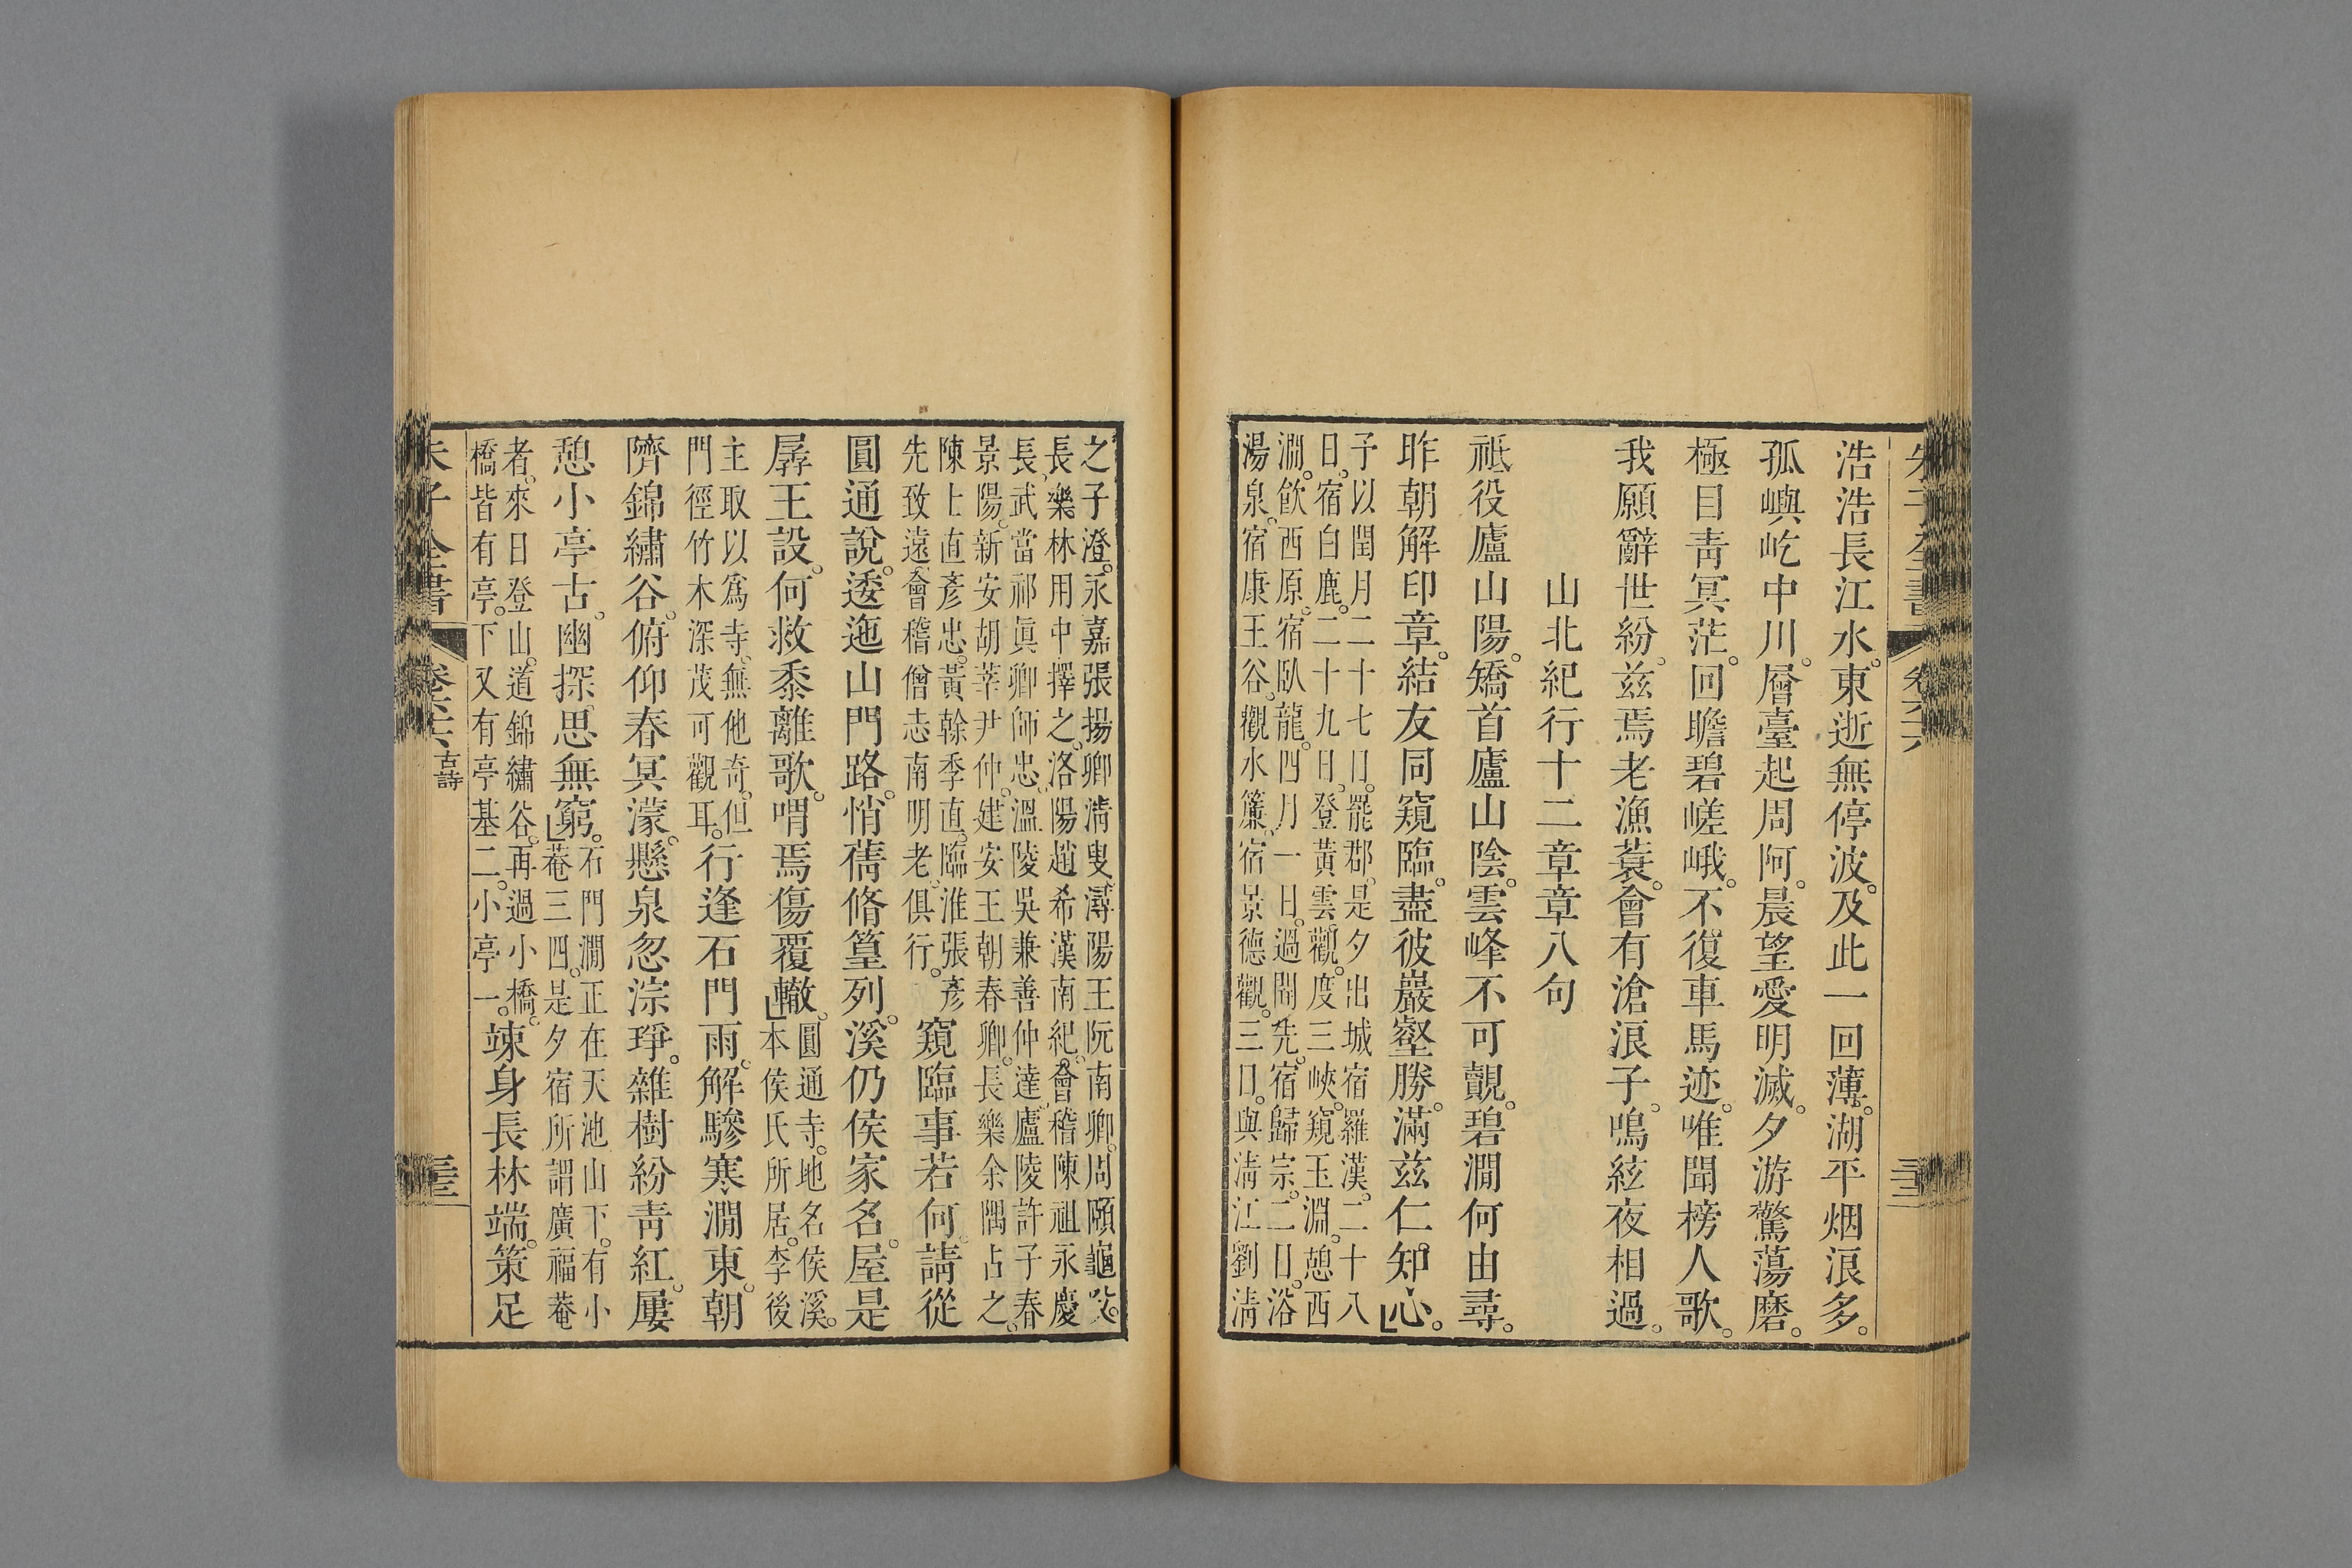 浩浩長江水。東逝無停波。及此一回薄。湖平烟浪多。
孤嶼屹中川。層臺起周阿。晨望愛明滅。夕游驚蕩磨。
極目靑冥茫。回瞻碧嵯峨。不復車馬迹。唯聞榜人歌。
我願辭世紛。茲焉老漁蓑。會有滄浪子。鳴絃夜相過。
山北紀行十二章章八句
祗役廬山陽。矯首廬山陰。雲峰不可覿。碧澗何由尋。
昨朝解印章。結友同窺臨。盡彼巖壑勝。滿茲仁知心。
子以閏月二十七日。罷郡。是夕出城宿羅漢。二十八
日。宿白鹿。二十九日。登黃雲觀。度三峽。窺玉淵。憩西
澗。飮西原。宿臥龍。四月一日。過開先。宿歸宗。二日。浴
湯泉。宿康王谷。觀水簾。宿景德觀。三日。與淸江劉淸
之子澄。永嘉張揚卿淸叟。潯陽王阮南卿。周頤龜父。
長樂林用中擇之。洛陽趙希漢南紀。會稽陳祖永慶
長。武當祁眞卿師忠。溫陵吳兼善仲達。廬陵許子春
景陽。新安胡莘尹仲。建安王朝春卿。長樂余隅占之。
陳士直彥忠。黃榦季直。臨淮張彥
先致遠。會稽僧志南明老。俱行。
窺臨事若何。請從
圓通說。逶迤山門路。悄蒨脩篁列。溪仍侯家名。屋是
孱王設。何救黍離歌。喟焉傷覆轍。
圓通寺。地名侯溪。
本侯氏所居。李後
主取以爲寺。無他奇。但
門徑竹木深茂可觀耳。
行逢石門雨。解驂寒澗東。朝
隮錦繡谷。俯仰春冥濛。懸泉忽淙琤。雜樹紛靑紅。屢
憩小亭古。幽探思無窮。
石門澗正在天池山下。有小
菴三四。是夕宿所謂廣福菴
者。來日登山。道錦繡谷。再過小橋。
橋皆有亭。下又有亭基二。小亭一。
竦身長林端。策足
朱子全書
卷六十六
古詩